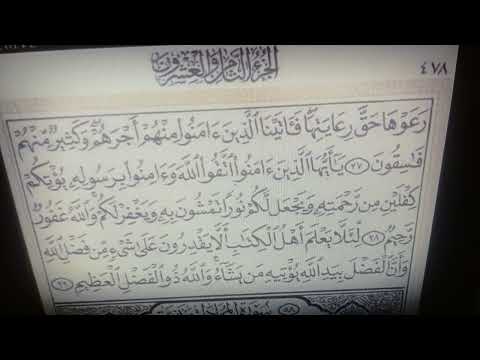 الجزء الثامن والعشرون
٤٧٨
رَعَوْهَا حَقَّ رِعَايَتِهَا فَـَٔاتَيْنَا ٱلَّذِينَ ءَامَنُوا۟ مِنْهُمْ أَجْرَهُمْ وَكَثِيرٌ مِّنْهُمْ
فَٰسِقُونَ ٢٧ يَٰٓأَيُّهَا ٱلَّذِينَ ءَامَنُوا۟ ٱتَّقُوا۟ ٱللَّهَ وَءَامِنُوا۟ بِرَسُولِهِۦ يُؤْتِكُمْ
كِفْلَيْنِ مِن رَّحْمَتِهِۦ وَيَجْعَل لَّكُمْ نُورًا تَمْشُونَ بِهِۦ وَيَغْفِرْ لَكُمْ وَٱللَّهُ غَفُورٌ
رَّحِيمٌ ٢٨ لِّئَلَّا يَعْلَمَ أَهْلُ ٱلْكِتَٰبِ أَلَّا يَقْدِرُونَ عَلَىٰ شَىْءٍ مِّن فَضْلِ ٱللَّهِ
وَأَنَّ ٱلْفَضْلَ بِيَدِ ٱللَّهِ يُؤْتِيهِ مَن يَشَآءُ وَٱللَّهُ ذُو ٱلْفَضْلِ ٱلْعَظِيمِ ٢٩